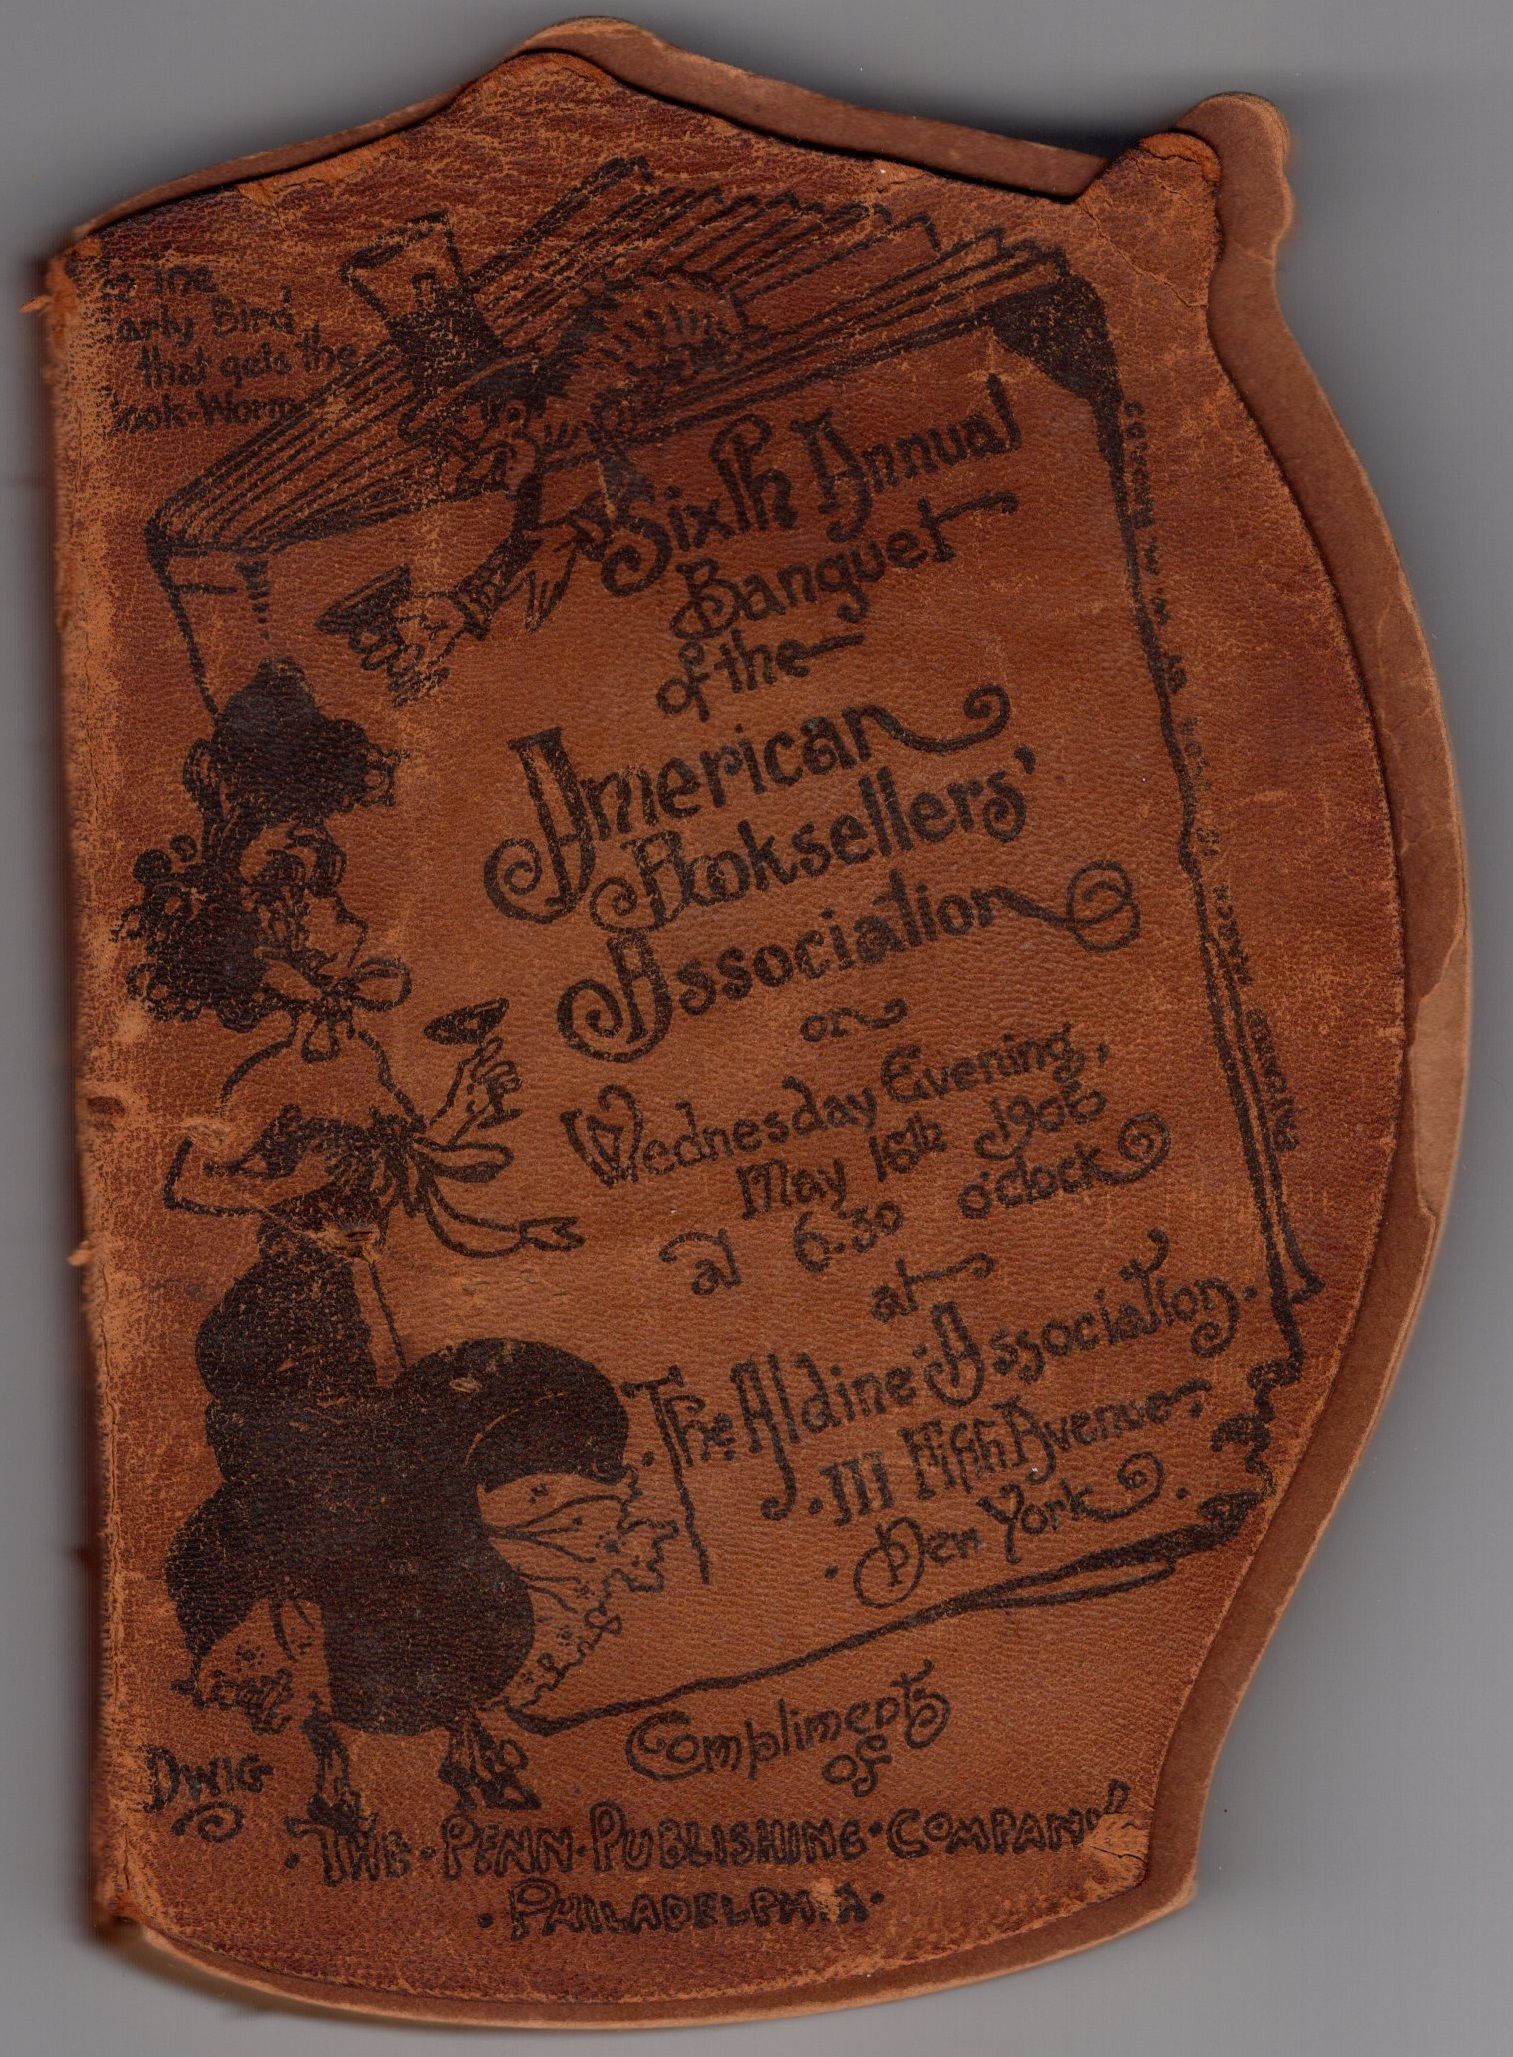 The
Early Bird
that gets the
Book-Worm
Sixth Annual
Banquet
of the
American
Booksellers'
Association
on
Wednesday Evening,
May 16th 1906
at 6.30 o'clock
at
The Aldine Association.
111 Fifth Avenue.
New York.
DWIG
Compliments
of
THE·PENN·PUBLISHING·COMPANY
·PHILADELPHIA·